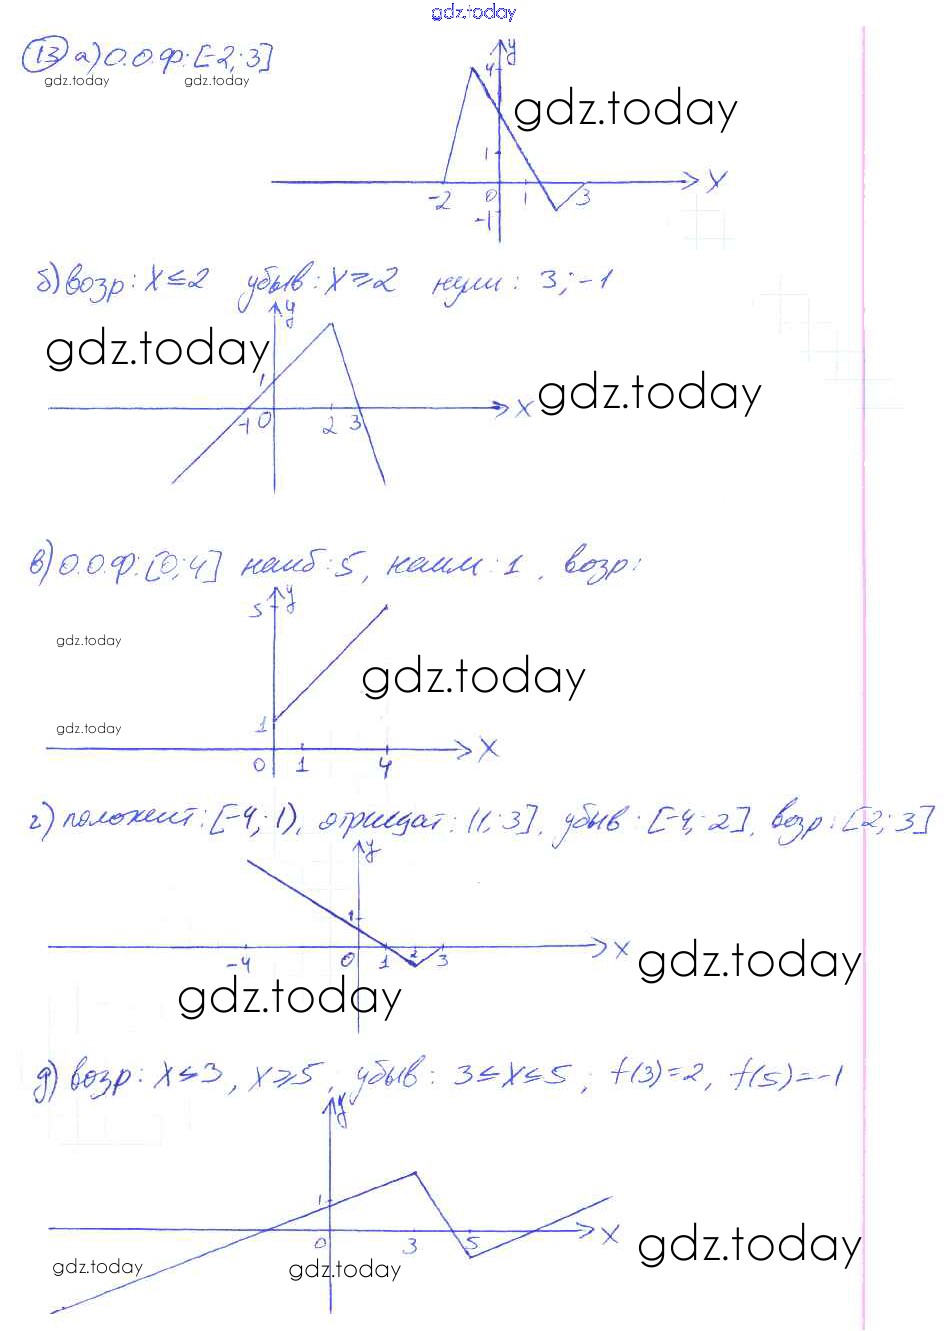 gdz.today
13 а) О.О.Ф: [-2; 3]
gdz.today gdz.today
y
4
gdz.today
1
-2 0 1 3 X
-1
б) возр: X ≤ 2 убыв: X ≥ 2 нули: 3; -1
y
gdz.today
1
gdz.today
-1 0 2 3 X
в) О.О.Ф: [0; 4] наиб: 5, наим: 1, возр:
5 y
gdz.today
gdz.today
1
gdz.today
0 1 4 X
г) положит: [-4; 1), отрицат: (1; 3], убыв: [-4; 2], возр: [2; 3]
y
1
-4 0 1 2 3 X
gdz.today
gdz.today
д) возр: X ≤ 3, X ≥ 5; убыв: 3 ≤ X ≤ 5; f(3)=2, f(5)=-1
y
1
0 3 5 X
gdz.today
gdz.today gdz.today